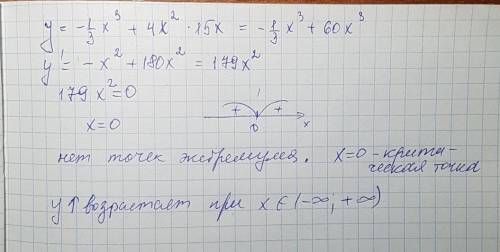 y = -1/3 x³ + 4x² · 15x = -1/3 x³ + 60x³
y' = -x² + 180x² = 179x²
179x² = 0
x = 0
+ +
0 x
нет точек экстремума. x=0 - крити-
ческая точка
y↑ возрастает при x ∈ (-∞; +∞)